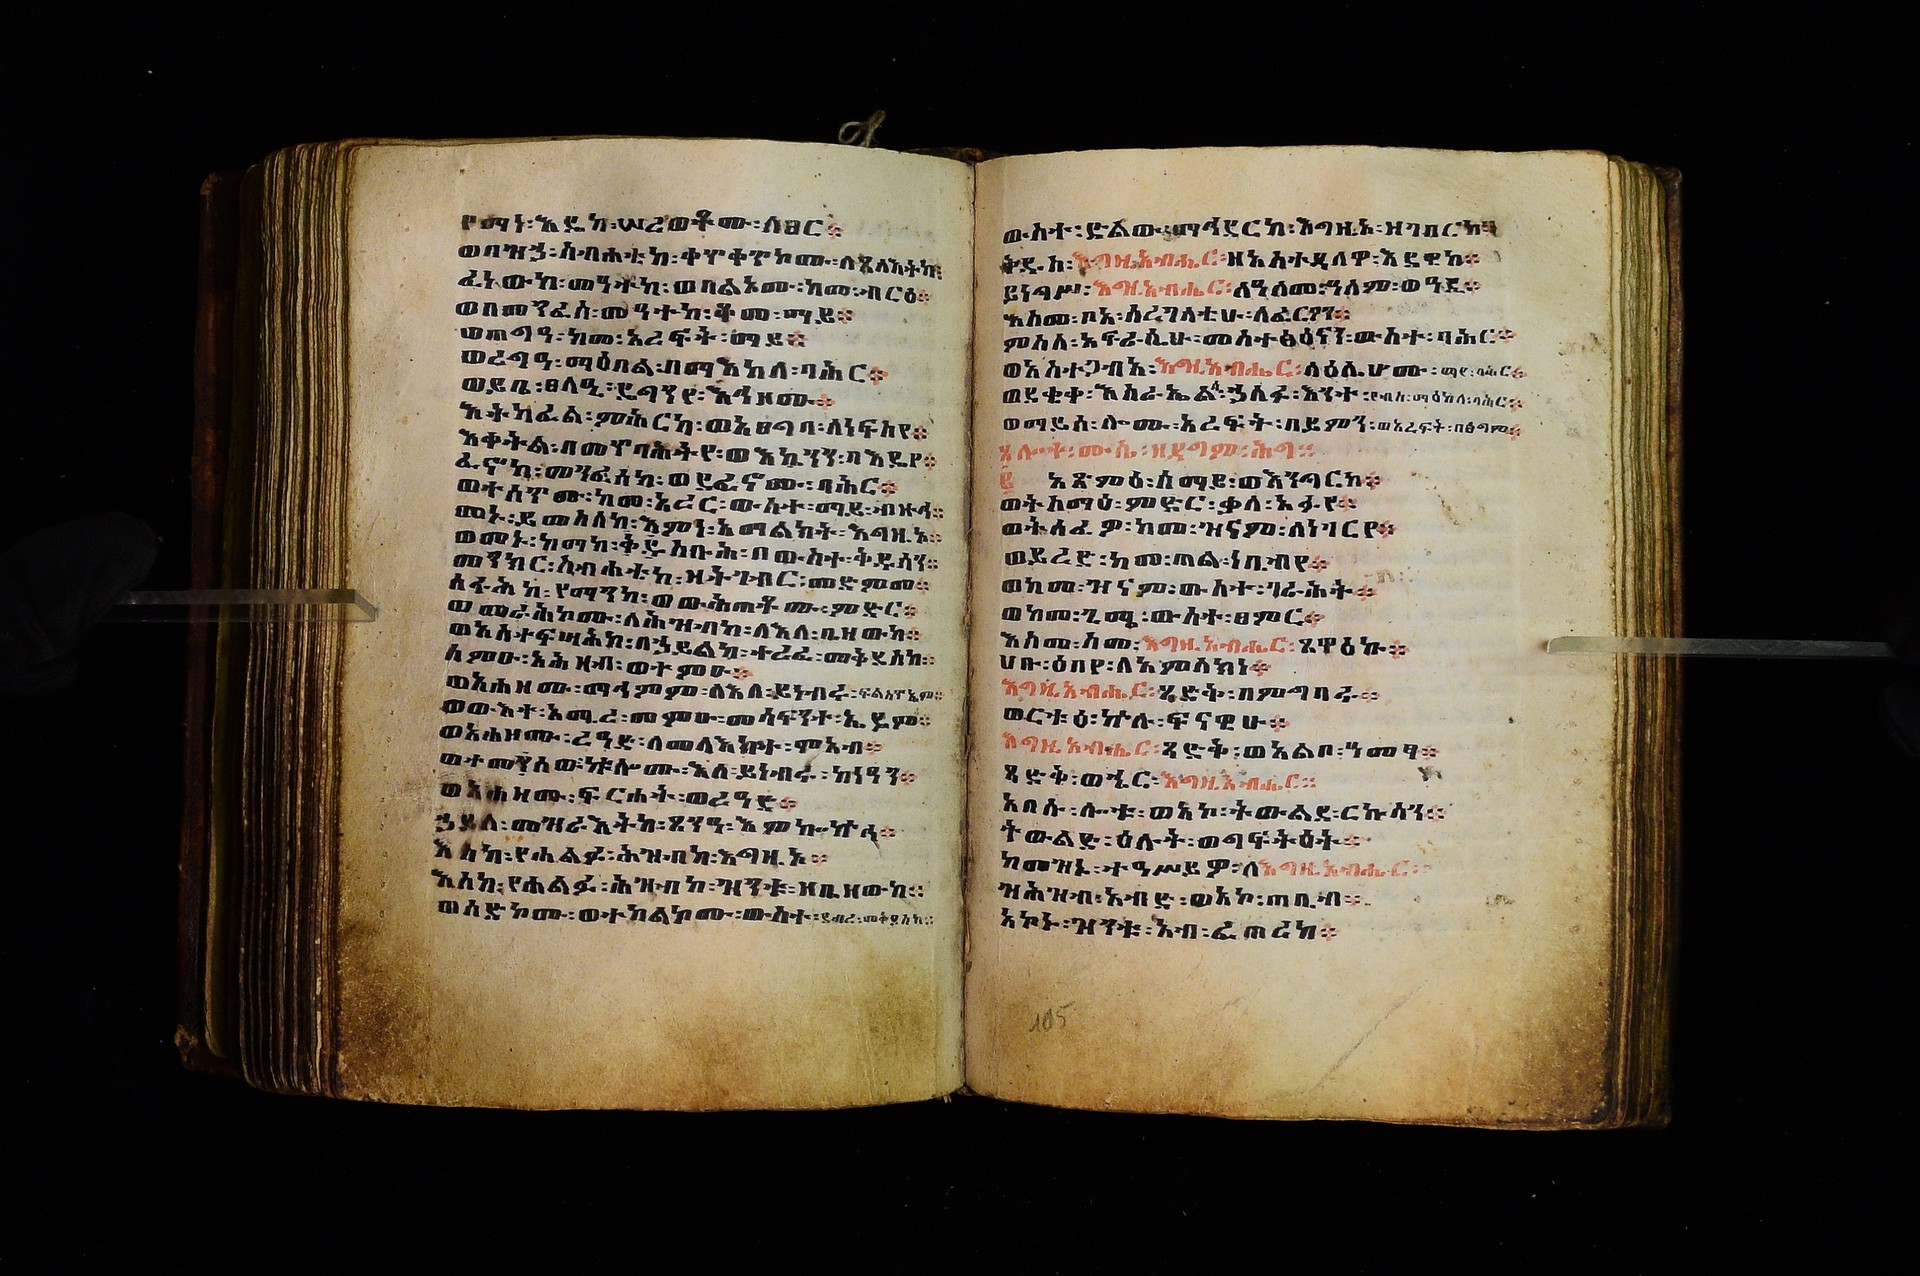 የማነ፡እዴከ፡ሠረወቶሙ፡ለፀር።
ወበዝኃ፡ስብሐቲከ፡ቀጥቀጥኮሙ፡ለጸላእትከ፡
ፈነውከ፡መዓትከ፡ወበልዖሙ፡ከመ፡ብርዕ።
ወበመንፈሰ፡መዓትከ፡ቆመ፡ማይ።
ወጠግዓ፡ከመ፡አረፍት፡ማይ።
ወረግዓ፡ማዕበል፡በማእከለ፡ባሕር።
ወይቤ፡ፀላዒ፡ዴግንየ፡እኅዞሙ።
እትካፈል፡ምሕርካ፡ወአፀግባ፡ለነፍስየ።
እቀትል፡በመጥባሕትየ፡ወእኴንን፡በእዴየ።
ፈኖከ፡መንፈሰከ፡ወደፈኖሙ፡ባሕር።
ወተሰጥሙ፡ከመ፡አረር፡ውስተ፡ማይ፡ብዙኅ።
መኑ፡ይመስለከ፡እምነ፡አማልክት፡እግዚኦ።
ወመኑ፡ከማከ፡ቅዱስ፡ስቡሕ፡በውስተ፡ቅዱሳን።
መንክር፡ስብሐቲከ፡ዘትገብር፡መድምመ።
ሰፋሕከ፡የማንከ፡ወውሕጠቶሙ፡ምድር።
ወመራሕኮሙ፡ለሕዝብከ፡ለእለ፡ቤዘውከ።
ወአስተፍሣሕከ፡በኃይልከ፡ተረፈ፡መቅደስከ።
ሰምዑ፡አሕዛብ፡ወተምዑ።
ወአሐዞሙ፡ማኅምም፡ለእለ፡ይነብሩ፡ፍልስጥኤም።
ወውእተ፡አሚረ፡መምዑ፡መሳፍንተ፡ኤዶም።
ወአሐዞሙ፡ረዓድ፡ለመላእክተ፡ሞአብ።
ወተመንሰወ፡ኵሎሙ፡እለ፡ይነብሩ፡ከነዓን።
ወአሐዞሙ፡ፍርሀት፡ወረዓድ።
ኃይለ፡መዝራእትከ፡ጸንዓ፡እምኰኵሕ።
እስከ፡የሐልፍ፡ሕዝብከ፡እግዚኦ።
እስከ፡የሐልፍ፡ሕዝብከ፡ዝንቱ፡ዘቤዘውከ።
ወስድኮሙ፡ወተክልኮሙ፡ውስተ፡ደብረ፡መቅደስከ።
ውስተ፡ድልው፡ማኅደርከ፡እግዚኦ፡ዘገበርከ
ቅዱስ፡እግዚአብሔር፡ዘአስተዳለዋ፡እደዊከ።
ይነግሥ፡እግዚአብሔር፡ለዓለመ፡ዓለም፡ወዓዲ።
እስመ፡ቦአ፡ሰረገላቲሁ፡ለፈርዖን።
ምስለ፡አፍራሲሁ፡መስተፅዕናን፡ውስተ፡ባሕር።
ወአስተጋብአ፡እግዚአብሔር፡ላዕሌሆሙ፡ማየ፡ባሕር።
ወደቂቀ፡እስራኤልሰ፡ኃለፉ፡እንተ፡የብስ፡ማዕከለ፡ባሕር።
ወማይሰ፡ሎሙ፡አረፍት፡በይምን፡ወአረፍት፡በፀግም።
ጸሎተ፡ሙሴ፡ዘዳግም፡ሕግ።
፪ አጽምዕ፡ሰማይ፡ወእንግርከ።
ወትስማዕ፡ምድር፡ቃለ፡አፉየ።
ወትሰፈዎ፡ከመ፡ዝናም፡ለነገርየ።
ወይረድ፡ከመ፡ጠል፡ነቢብየ።
ወከመ፡ዝናም፡ውስተ፡ገራሕት።
ወከመ፡ጊሜ፡ውስተ፡ፀምር።
እስመ፡ስመ፡እግዚአብሔር፡ጸዋዕኩ።
ሀቡ፡ዕበየ፡ለአምላክነ።
እግዚአብሔር፡ጻድቅ፡በምግባሩ።
ወርቱዕ፡ኵሉ፡ፍናዊሁ።
እግዚአብሔር፡ጻድቅ፡ወአልቦ፡ዓመፃ።
ጻድቅ፡ወኄር፡እግዚአብሔር።
አበሱ፡ሎቱ፡ወአኮ፡ትውልደ፡ርኩሳን።
ትውልድ፡ዕሉት፡ወግፍትዕት።
ከመዝኑ፡ተዓሥይዎ፡ለእግዚአብሔር።
ዝሕዝብ፡አብድ፡ወአኮ፡ጠቢብ።
አኮኑ፡ዝንቱ፡አብ፡ፈጠረከ።
105